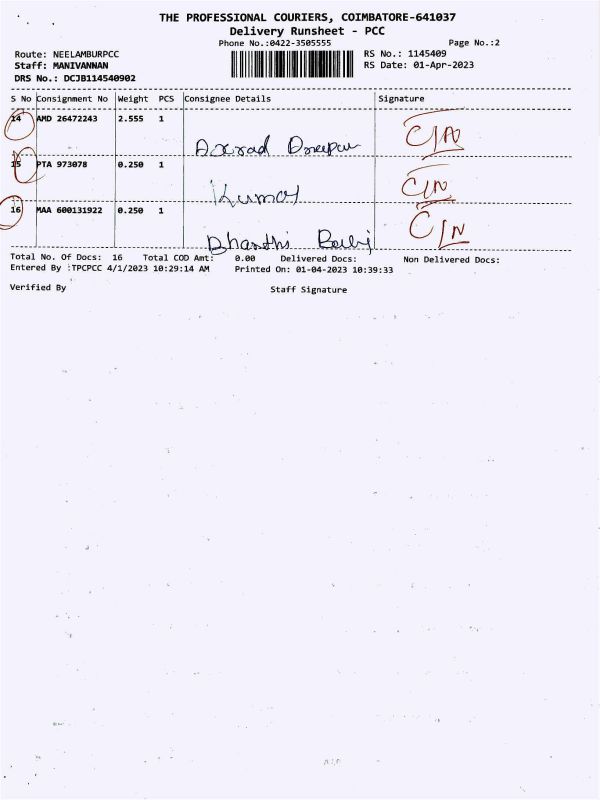 THE PROFESSIONAL COURIERS, COIMBATORE-641037
Delivery Runsheet - PCC
Phone No.:0422-3505555 Page No.:2
Route: NEELAMBURPCC RS No.: 1145409
Staff: MANIVANNAN RS Date: 01-Apr-2023
DRS No.: DCJB114540902
S No Consignment No Weight PCS Consignee Details Signature
14 AMD 26472243 2.555 1
15 PTA 973078 0.250 1
Kumar
16 MAA 600131922 0.250 1
Total No. Of Docs: 16 Total COD Amt: 0.00 Delivered Docs: Non Delivered Docs:
Entered By :TPCPCC 4/1/2023 10:29:14 AM Printed On: 01-04-2023 10:39:33
Verified By Staff Signature